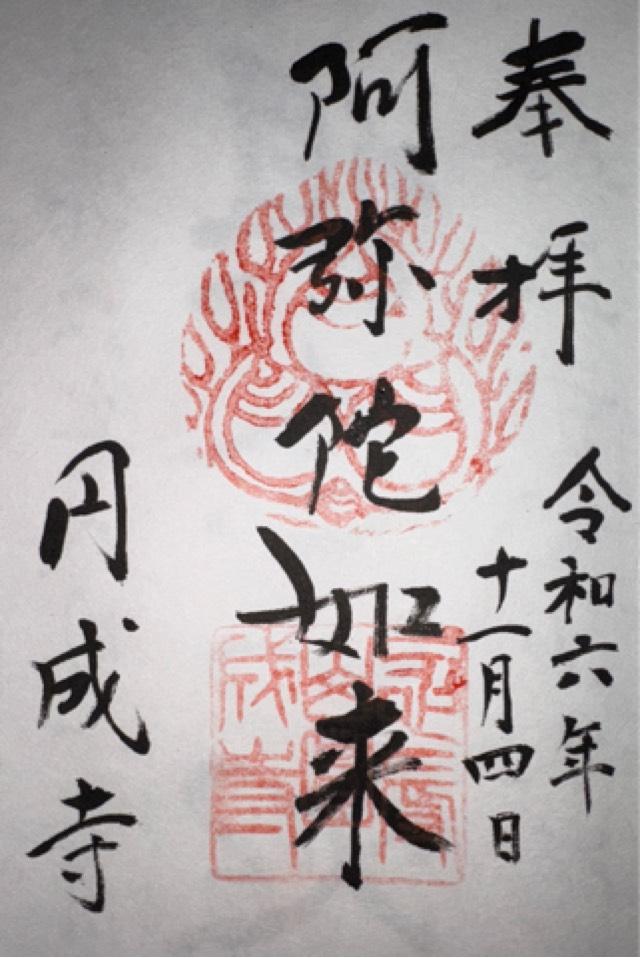 奉拝
令和六年
十一月四日
阿弥陀如来
円成寺